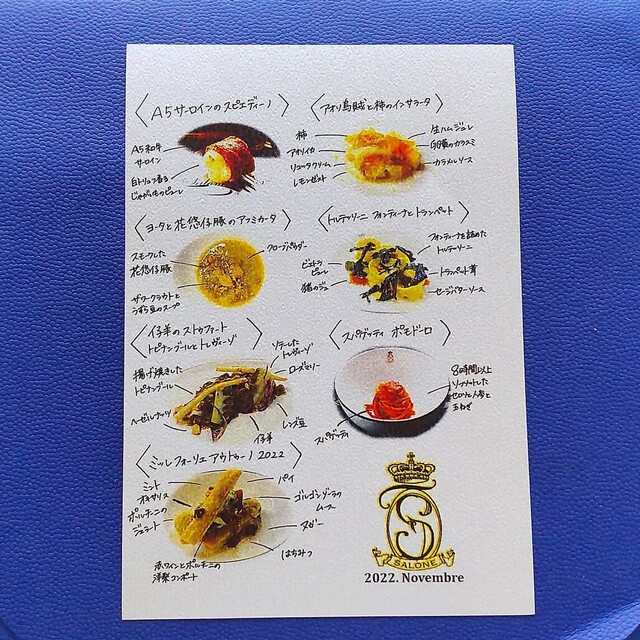 〈 A5サーロインのスピエディーノ 〉
A5和牛
サーロイン
白トリュフ香る
じゃがいものピューレ
〈 アオリ烏賊と柿のインサラータ 〉
柿
アオリイカ
リコッタクリーム
レモンゼット
生ハムジュレ
カラスミ
カラメルソース
〈 ヨータと花悠仔豚のアフミカータ 〉
スモークした
花悠仔豚
ザワークラウトと
うずら豆のスープ
クローブパウダー
〈 トルテッリーニ フォンティーナとトランペット 〉
ビエトラ
ピューレ
猪のジュ
フォンティーナを詰めた
トルテッリーニ
トランペット茸
セージバターソース
〈 仔羊のストゥファート
トピナンブールとトレヴィーゾ 〉
揚げ焼きした
トピナンブール
ヘーゼルナッツ
ソテーした
トレヴィーゾ
ローズマリー
レンズ豆
仔羊
〈 スパゲッティ ポモドーロ 〉
8時間以上
ソフリットした
セロリと人参と
玉ねぎ
スパゲッティ
〈 ミッレフォーリエ アウトゥーノ 2022 〉
ミント
オキサリス
ポルチーニの
ジェラート
赤ワインとポルチーニの
洋梨コンポート
パイ
ゴルゴンゾーラの
ムース
ヌガー
はちみつ
TS
SALONE
2022. Novembre